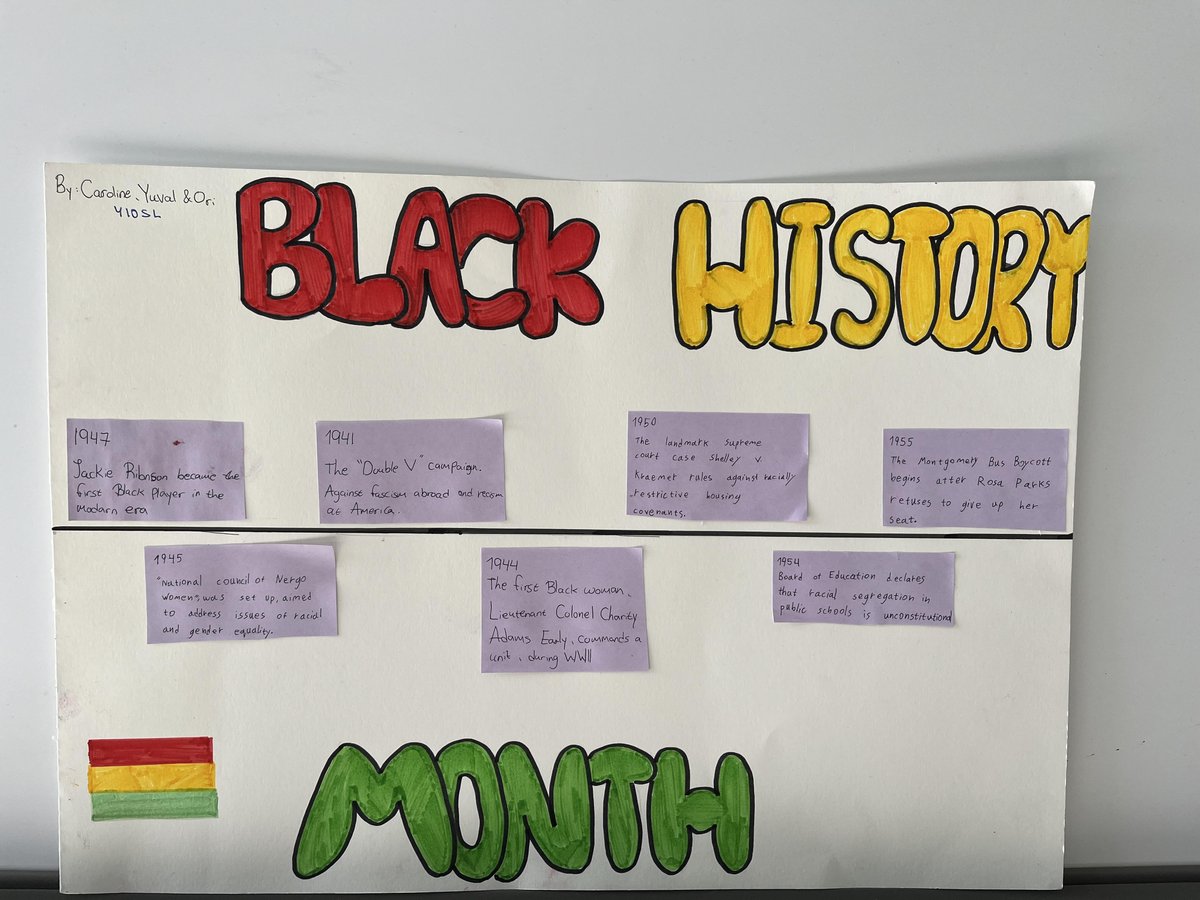 By: Caroline, Yuval & Ori
Y10SL
BLACK
HISTORY
1947
Jackie Ribnson became the
first Black Player in the
Modarn era
1941
The "Double V" campaign.
Against fascism abroad and racism
at America.
1950
The landmark Supreme
court case Shelley v.
Kraemer rules against racially
restrictive housing
covenants.
1955
The Montgomery Bus Boycott
begins after Rosa Parks
refuses to give up her
seat.
1945
"National council of Nergo
women", was set up, aimed
to address issues of racial
and gender equality.
1944
The first Black woman,
Lieutenant Colonel Charity
Adams Early, commands a
unit, during WWII
1954
Board of Education declares
that racial segregation in
public schools is unconstitutional
MONTH